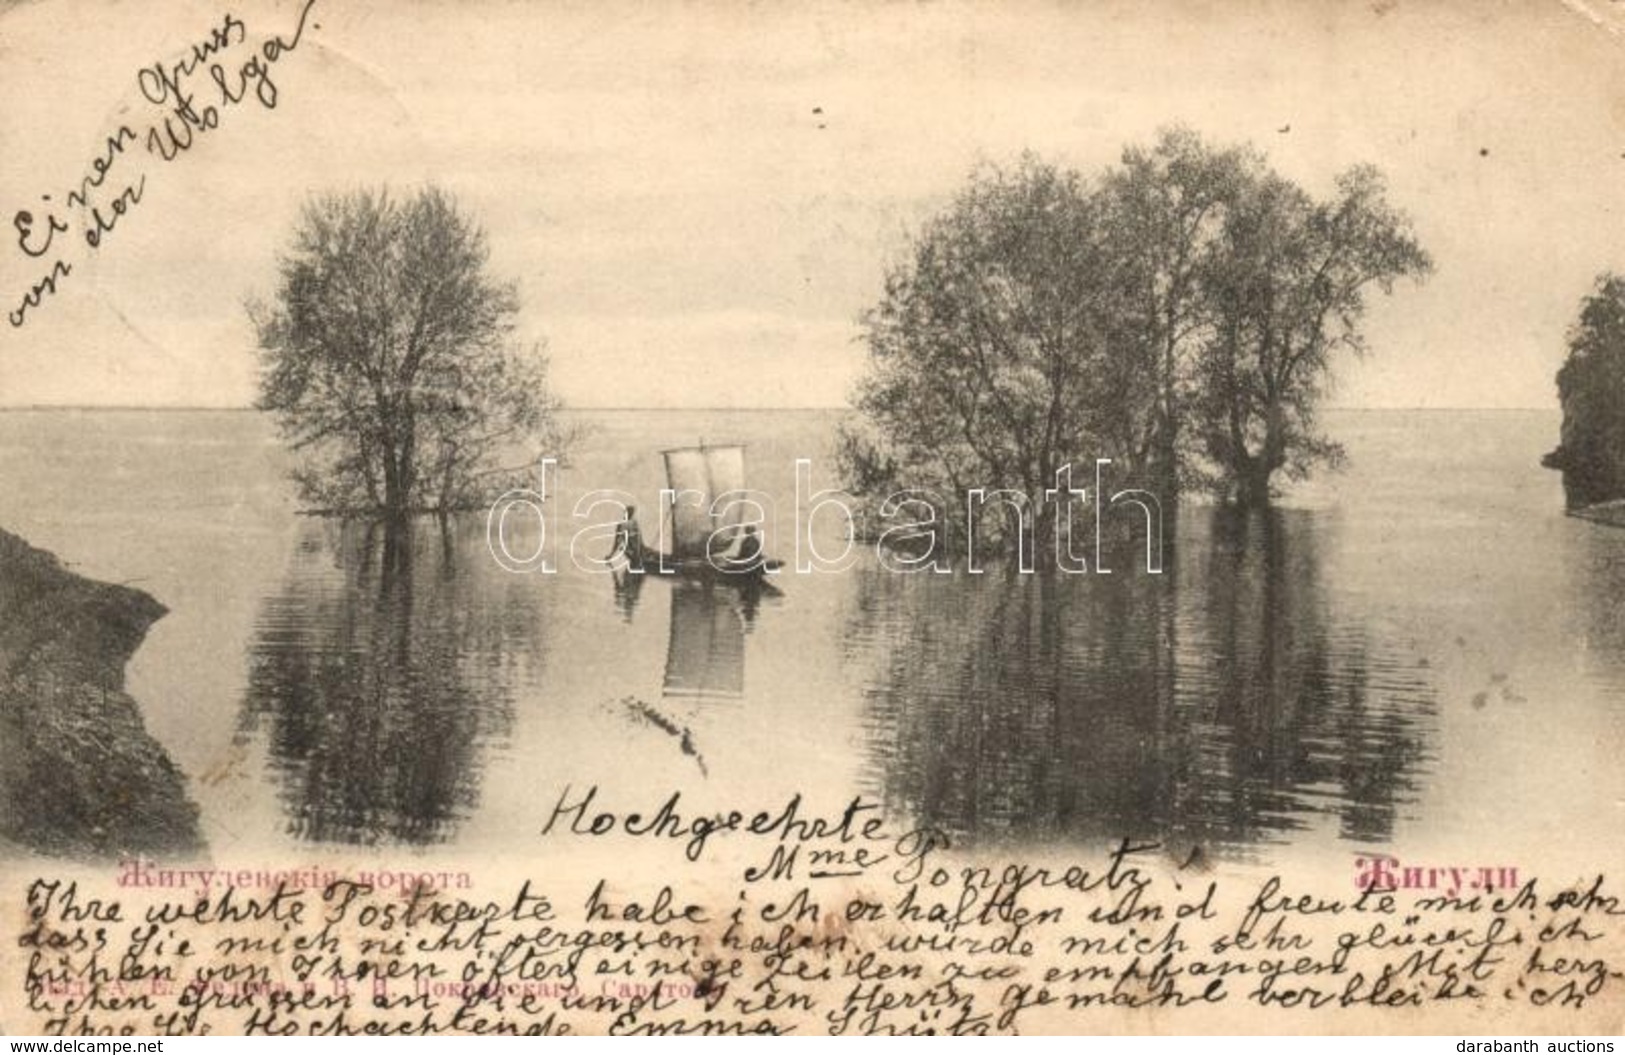 Einen Gruss
von der Wolga.
darabanth
Hochgeehrte
Mme Pongratz,
Жигулевскія ворота
Жигули
Ihre wehrte Postkarte habe ich erhalten und freute mich sehr
dass Sie mich nicht vergessen haben. würde mich sehr glücklich
fühlen von Ihnen öfters einige Zeilen zu empfangen. Mit herz-
lichen Grüssen an Sie und Iren Herrn gemahl verbleibe ich
Ihre Sie Hochachtende Emma Shütz.
delcampe.net
darabanth auctions